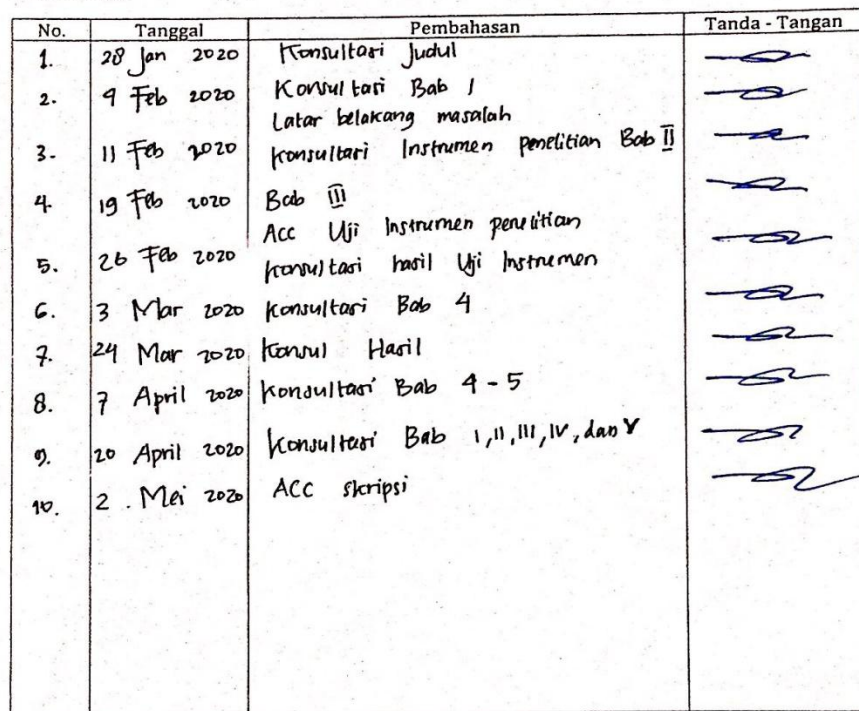 No. Tanggal Pembahasan Tanda - Tangan
1. 28 Jan 2020 Konsultasi Judul
2. 9 Feb 2020 Konsultasi Bab 1
Latar belakang masalah
3. 11 Feb 2020 Konsultasi Instrumen penelitian Bab II
4. 19 Feb 2020 Bab III
ACC Uji Instrumen penelitian
5. 26 Feb 2020 Konsultasi hasil Uji Instrumen
6. 3 Mar 2020 Konsultasi Bab 4
7. 24 Mar 2020 Konsul Hasil
8. 7 April 2020 Konsultasi Bab 4-5
9. 20 April 2020 Konsultasi Bab I, II, III, IV, dan V
10. 2. Mei 2020 ACC skripsi